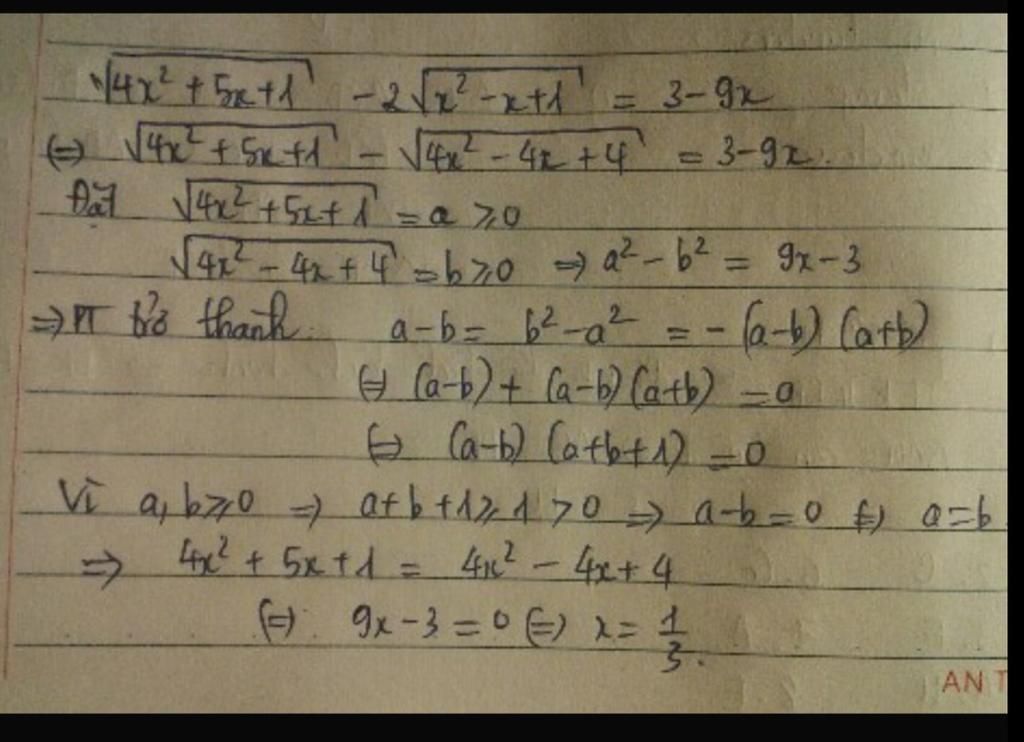 √(4x² + 5x + 1) - 2√(x² - x + 1) = 3 - 9x
(=) √(4x² + 5x + 1) - √(4x² - 4x + 4) = 3 - 9x.
Đặt √(4x² + 5x + 1) = a ⩾ 0
√(4x² - 4x + 4) = b ⩾ 0 => a² - b² = 9x - 3
=> PT trở thành: a - b = b² - a² = - (a-b) (a+b)
(=) (a-b) + (a-b) (a+b) = 0
(=) (a-b) (a+b+1) = 0
Vì a, b ⩾ 0 => a + b + 1 ⩾ 1 > 0 => a - b = 0 (=) a = b
=> 4x² + 5x + 1 = 4x² - 4x + 4
(=) 9x - 3 = 0 (=) x = 1/3.
AN T